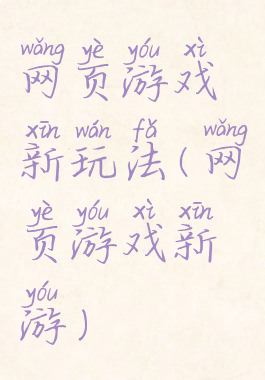 wǎng yè yóu xì
网页游戏
xīn wán fǎ wǎng
新玩法(网
yè yóu xì xīn
页游戏新
yóu
游)